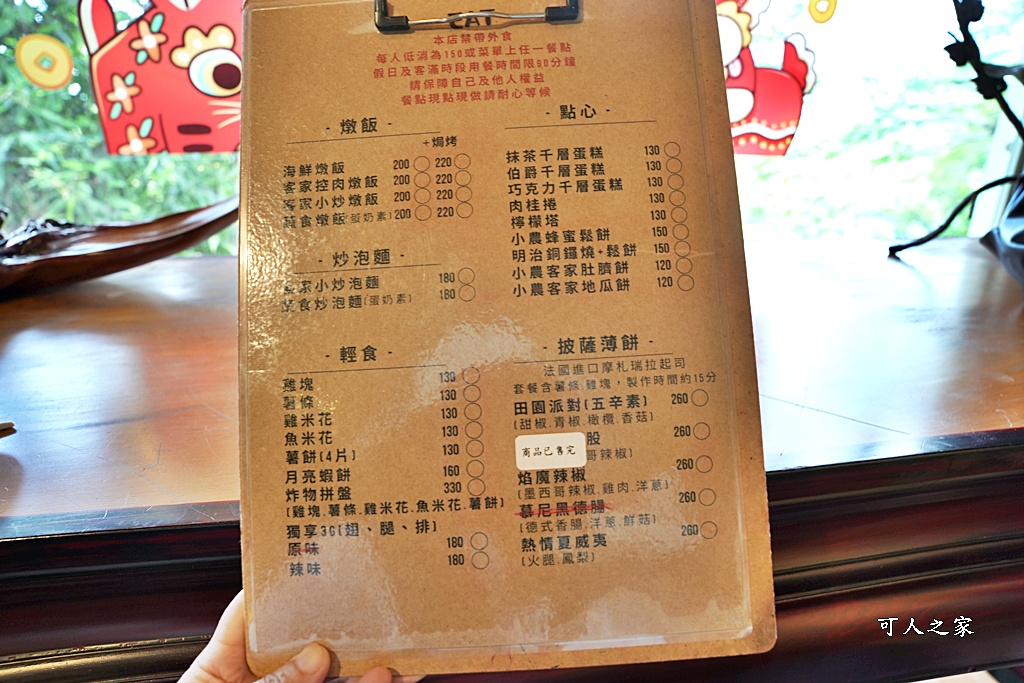 EAT
本店禁帶外食
每人低消為150或菜單上任一餐點
假日及客滿時段用餐時間限90分鐘
請保障自己及他人權益
餐點現點現做請耐心等候
- 燉飯 -
+焗烤
海鮮燉飯 200 220
客家控肉燉飯 200 220
客家小炒燉飯 200 220
蔬食燉飯(蛋奶素) 200 220
- 炒泡麵 -
客家小炒泡麵 180
蔬食炒泡麵(蛋奶素) 180
- 輕食 -
雞塊 130
薯條 130
雞米花 130
魚米花 130
薯餅(4片) 130
月亮蝦餅 160
炸物拼盤 330
(雞塊.薯條.雞米花.魚米花.薯餅)
獨享3G(翅、腿、排)
原味 180
辣味 180
- 點心 -
抹茶千層蛋糕 130
伯爵千層蛋糕 130
巧克力千層蛋糕 130
肉桂捲 130
檸檬塔 130
小農蜂蜜鬆餅 150
明治銅鑼燒+鬆餅 150
小農客家肚臍餅 120
小農客家地瓜餅 120
- 披薩薄餅 -
法國進口摩札瑞拉起司
套餐含薯條.雞塊，製作時間約15分
田園派對(五辛素) 260
(甜椒.青椒.橄欖.香菇)
商品已售完
股 260
哥辣椒)
焰魔辣椒 260
(墨西哥辣椒.雞肉.洋蔥)
慕尼黑德腸 260
(德式香腸.洋蔥.鮮菇)
熱情夏威夷 260
(火腿.鳳梨)
可人之家